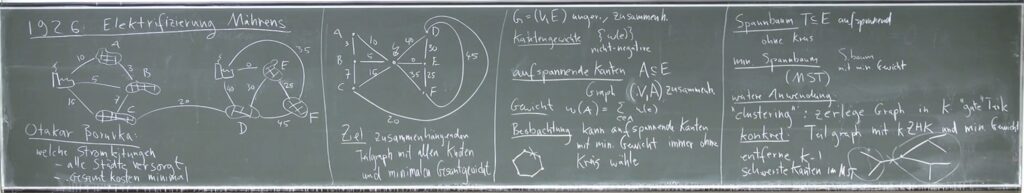 1926: Elektrifizierung Mährens
A
10
3
5
B
15
7
C
20
40
30
D
E
25
35
45
F
Otakar Boruvka:
welche Stromleitungen
- alle Städte versorgt
- Gesamtkosten minimal
A
3
10
B
5
7
15
C
40
D
30
0
E
35
25
F
45
20
Ziel zusammenhängenden
Teilgraph mit allen Knoten
und minimalen Gesamtgewicht
G = (V,E) unger., zusammenh.
Kantengewichte {w(e)}
nicht-negative
aufspannende Kanten A⊆E
Graph (V,A) zusammenh.
Gewicht w(A) = Σ w(e)
e∈A
Beobachtung kann aufspannende Kanten
mit min. Gewicht immer ohne
Kreis wähle
Spannbaum T⊆E aufspannend
ohne Kreis
min Spannbaum
mit min Gewicht
(MST)
weitere Anwendung
"clustering": zerlege Graph in k "gute" Teile
konkret: Teilgraph mit k ZHK und min Gewicht
entferne k-1
schwerste Kanten im MST